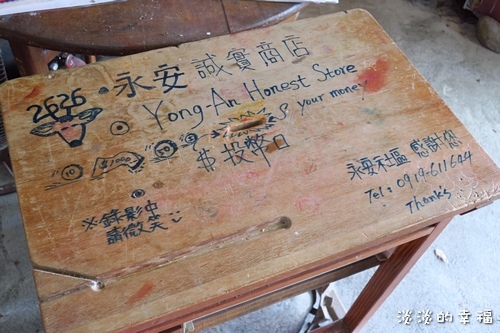 2626.永安 誠實商店
Yong-An Honest Store
$ your money
10 $1000 50
$投幣口
※錄影中
請微笑
永安社區 感謝您
Tel: 0919-611644
Thanks
淡淡的幸福